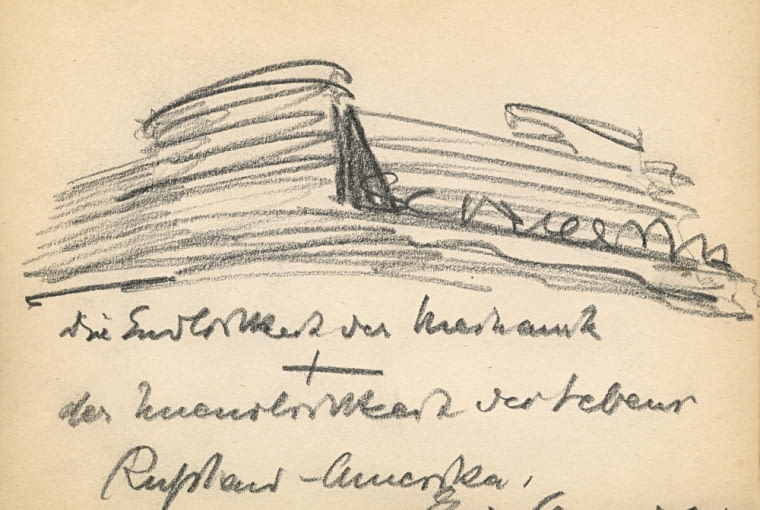 die Endlichkeit der Mechanik
+
der Unendlichkeit des Lebens
Rußland - Amerika,